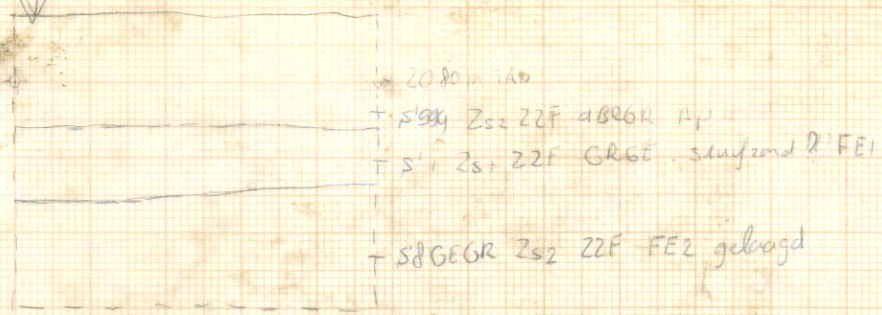 S999 Zs2 ZZF BRGR Ap
S1 Zs1 ZZF GRGE stuifzand? FE1
S8 GEGR Zs2 ZZF FE2 gelaagd